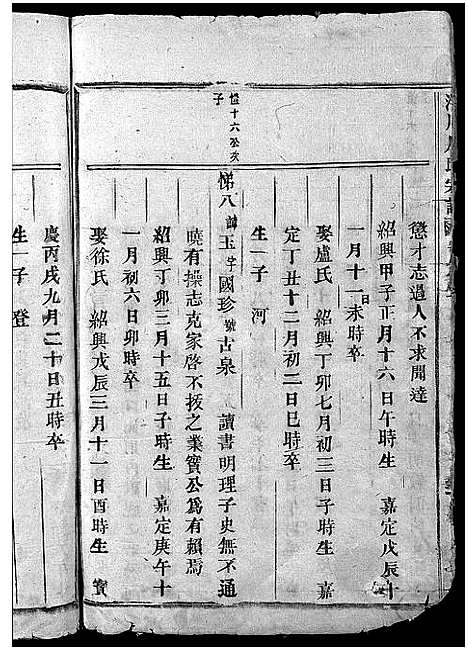 懲才志過人不求聞達
紹興甲子正月十六日午時生　嘉定戊辰十
一月十一日未時卒
娶盧氏　紹興丁卯七月初三日子時生　嘉
定丁丑十二月初二日巳時卒
生一子　河
愷十六公次子
悌八諱玉字國珍號古泉　讀書明理子史無不通
曉有操志克家啓不拔之業實公爲有賴焉
紹興丁卯三月十五日子時生　嘉定庚午十
一月初六日卯時卒
娶徐氏　紹興戊辰三月十一日酉時生　寶
慶丙戌九月二十日丑時卒
生一子　登